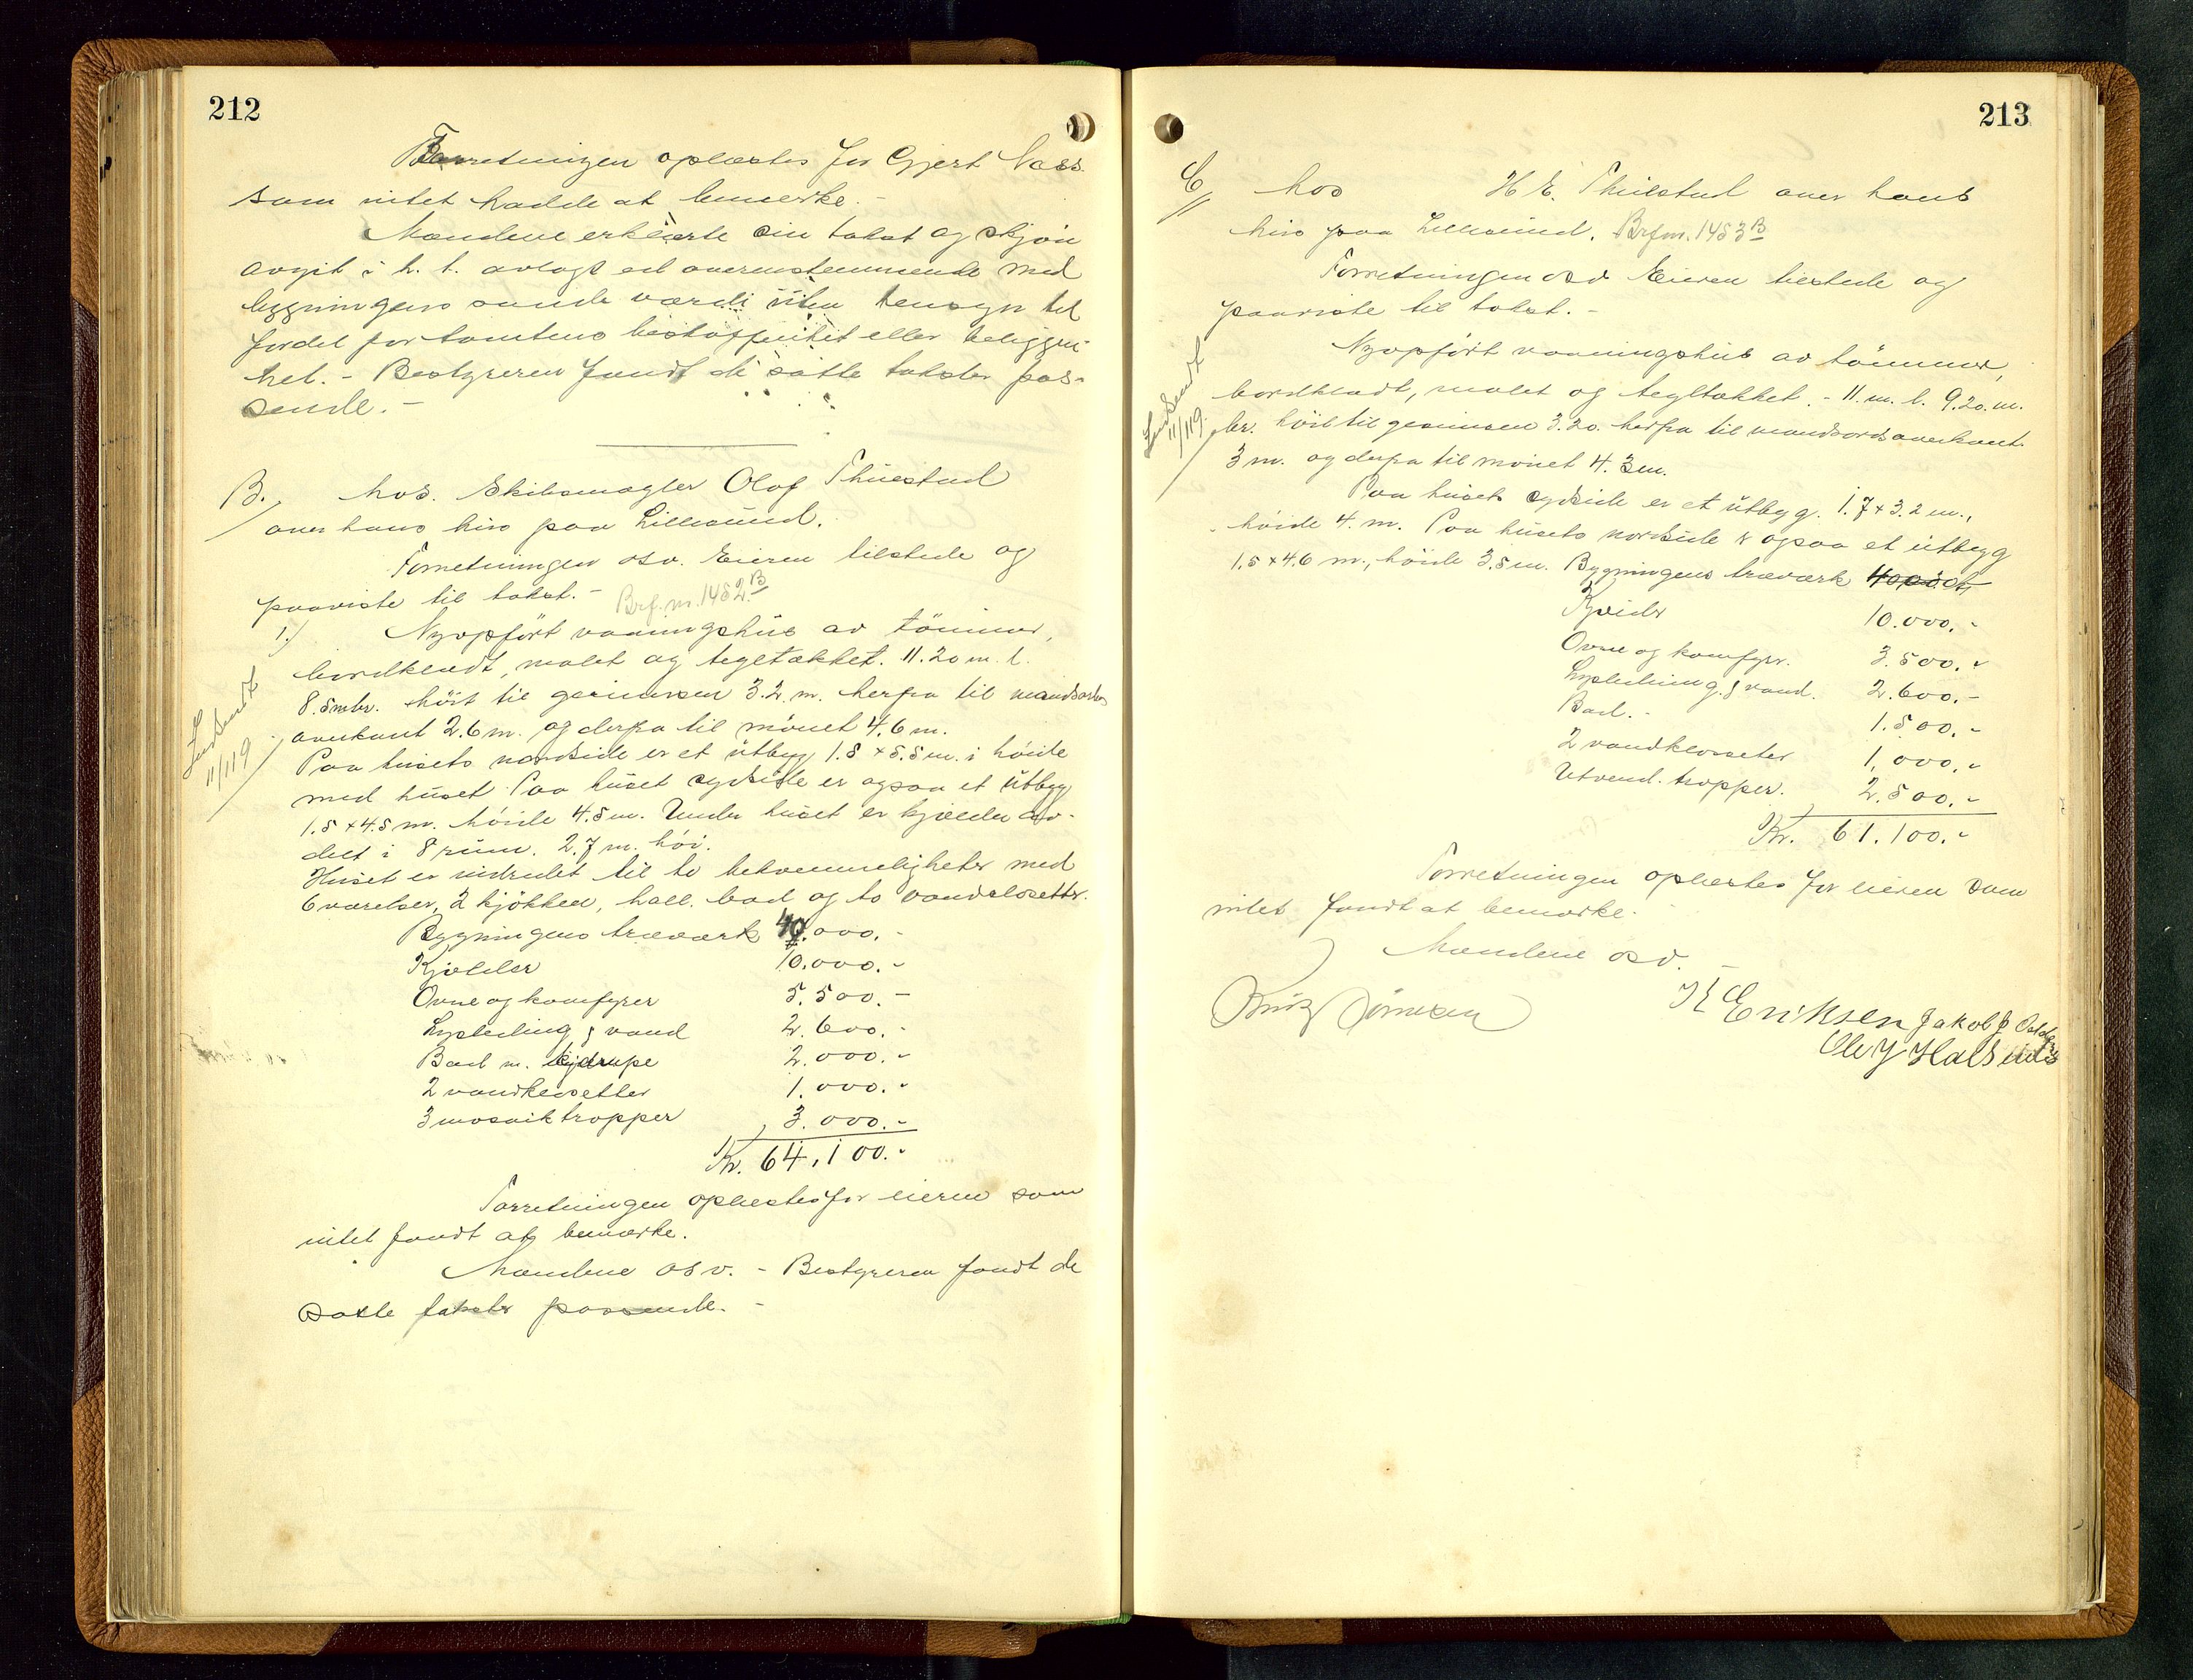 212
Forretningen oplæstes for Gjert Næss
som intet hadde at bemerke. -
Mændene erklærte sin takst og skjøn
avgit i h. t. avlagt ed overensstemmende med
bygningens sande værdi uten hensyn til
fordel for tomtens beskaffenhet eller beliggen-
het. - Bestyreren fandt de satte takster pas-
sende. -
B. hos. Skibsmægler Olaf Thuestad
over hans hus paa Lillesund.
Forretningen osv. Eieren tilstede og
paaviste til takst. - Brf. nr. 1452 B
1.) Nyopført vaaningshus av tømmer,
bordklædt, malet og tegltækket. 11.20 m. l.
8.5 m br. høit til gesimsen 3.2 m. herfra til mandsards
overkant 2.6 m. og derfra til mønet 4.6 m.
Indsendt
11/1 19
Paa husets nordside er et utbygg 1.5 x 5.5 m. i høide
med huset. Paa huset sydside er ogsaa et utbygg
1.5 x 4.5 m. høide 4.5 m. Under huset er kjælder av-
delt i 8 rum. 2.7 m. høi.
Huset er indredet til to bekvemmeligheter med
6 værelser, 2 kjøkken, hall. bad og to vandclosetter.
Bygningens træværk 40.000. -
Kjælder 10.000. -
Ovne og komfyrer 5.500. -
Lysledning & vand 2.600. -
Bad m. 2.000. -
2 vandklosetter 1.000. -
3 mosaiktrapper 3.000. -
Kr. 64.100. -
Forretningen oplæstes for eieren som
intet fandt at bemerke.
Mændene osv. - Bestyreren fandt de
satte takster passende. -
213
C hos H E. Thuestad over hans
hus paa Lillesund. Brf nr. 1453 B
Forretningen osv Eieren tilstede og
paaviste til takst. -
Nyopført vaaningshus av tømmer,
bordklædt, malet og tegltækket. - 11. m. l. 9.20. m.
Indsendt
11/1 19.
br. høit til gesimsen 3.20. herfra til mandsards overkant
3 m. og derfra til mønet 4.3 m.
Paa husets sydside er et utbyg. 1.7 x 3.2 m.,
høide 4. m. Paa husets nordside er ogsaa et utbygg
1.5 x 4.6 m., høide 3.5 m. Bygningens træværk 40000
Kjælder 10.000. -
Ovne og komfyrer. 3.500. -
Lysledning & vand. 2.600. -
Bad. - 1.500. -
2 vandklosseter 1.000. -
Utvend. trapper. 2.500. -
Kr. 61.100. -
Forretningen oplæstes for eieren som
intet fandt at bemerke.
Mændene osv. -
K Eriksen Jakob
Ole J